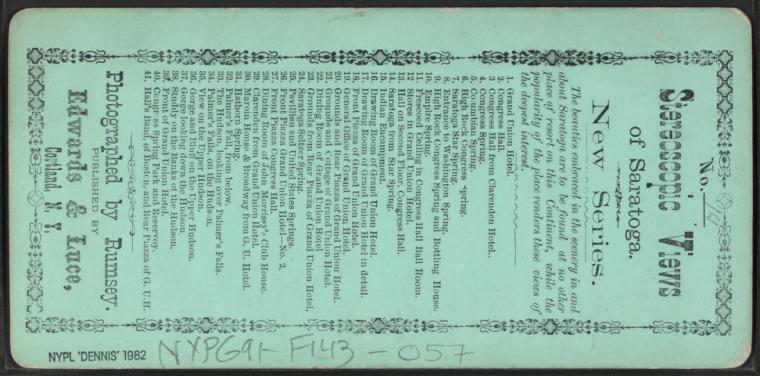 No. 
Stereoscopic Views
of Saratoga.
New Series.
The beauties embraced in the scenery in and
about Saratoga are to be found at no other
place of resort on this Continent, while the
popularity of the place renders these views of
the deepest interest.
1. Grand Union Hotel.
2. Congress Hall.
3. Congress Hall from Clarenden Hotel.
4. Congress Spring.
5. Columbian Spring.
6. High Rock Congress Spring.
7. Saratoga Star Spring.
8. Entrance to Washington Spring.
9. High Rock Congress Spring and Bottling House.
10. Empire Spring.
11. Frescoed Ceiling in Congress Hall Ball Room.
12. Staircase in Grand Union Hotel.
13. Hall on Second Floor, Congress Hall.
14. Saratoga from Star Spring.
15. Indian Encampment.
16. Drawing Room of Grand Union Hotel.
17. Drawing Room of Grand Union Hotel in detail.
18. Front Piazza of Grand Union Hotel.
19. General Office of Grand Union Hotel.
20. Grounds and Rear Piazza of Grand Union Hotel.
21. Grounds and Cottage of Grand Union Hotel.
22. Dining Room of Grand Union Hotel
23. Grounds and Rear Piazza of Grand Union Hotel.
24. Saratoga Seltzer Spring.
25. Pavillion and United States Springs.
26. Front Piazza Grand Union Hotel—No. 2.
27. Front Piazza Congress Hall.
28. Dining Room of John Morrisey's Club House.
29. Clarenden from Grand Union Hotel.
30. Marvin House & Broadway from G. U. Hotel.
31. Hathorn Spring.
32. Palmer's Falls, from below.
33. The Hudson, looking over Palmer's Falls.
34. Palmer's Falls, on the Hudson.
35. View on the Upper Hudson.
36. Gorge and Bluff on the Upper Hudson.
37. Gorge looking down the Hudson.
38. Studdy on the Banks of the Hudson.
39. Front of Grand Union Hotel.
40. Congress Spring Park and Reservoy.
41. Hall's Band, of Boston, and Rear Piazza of G. U. H.
Photographed by Rumsey.
PUBLISHED BY
Edwards & Luce,
Cortland, N. Y.
NYPL "DENNIS" 1982
NYPG91-F143-057